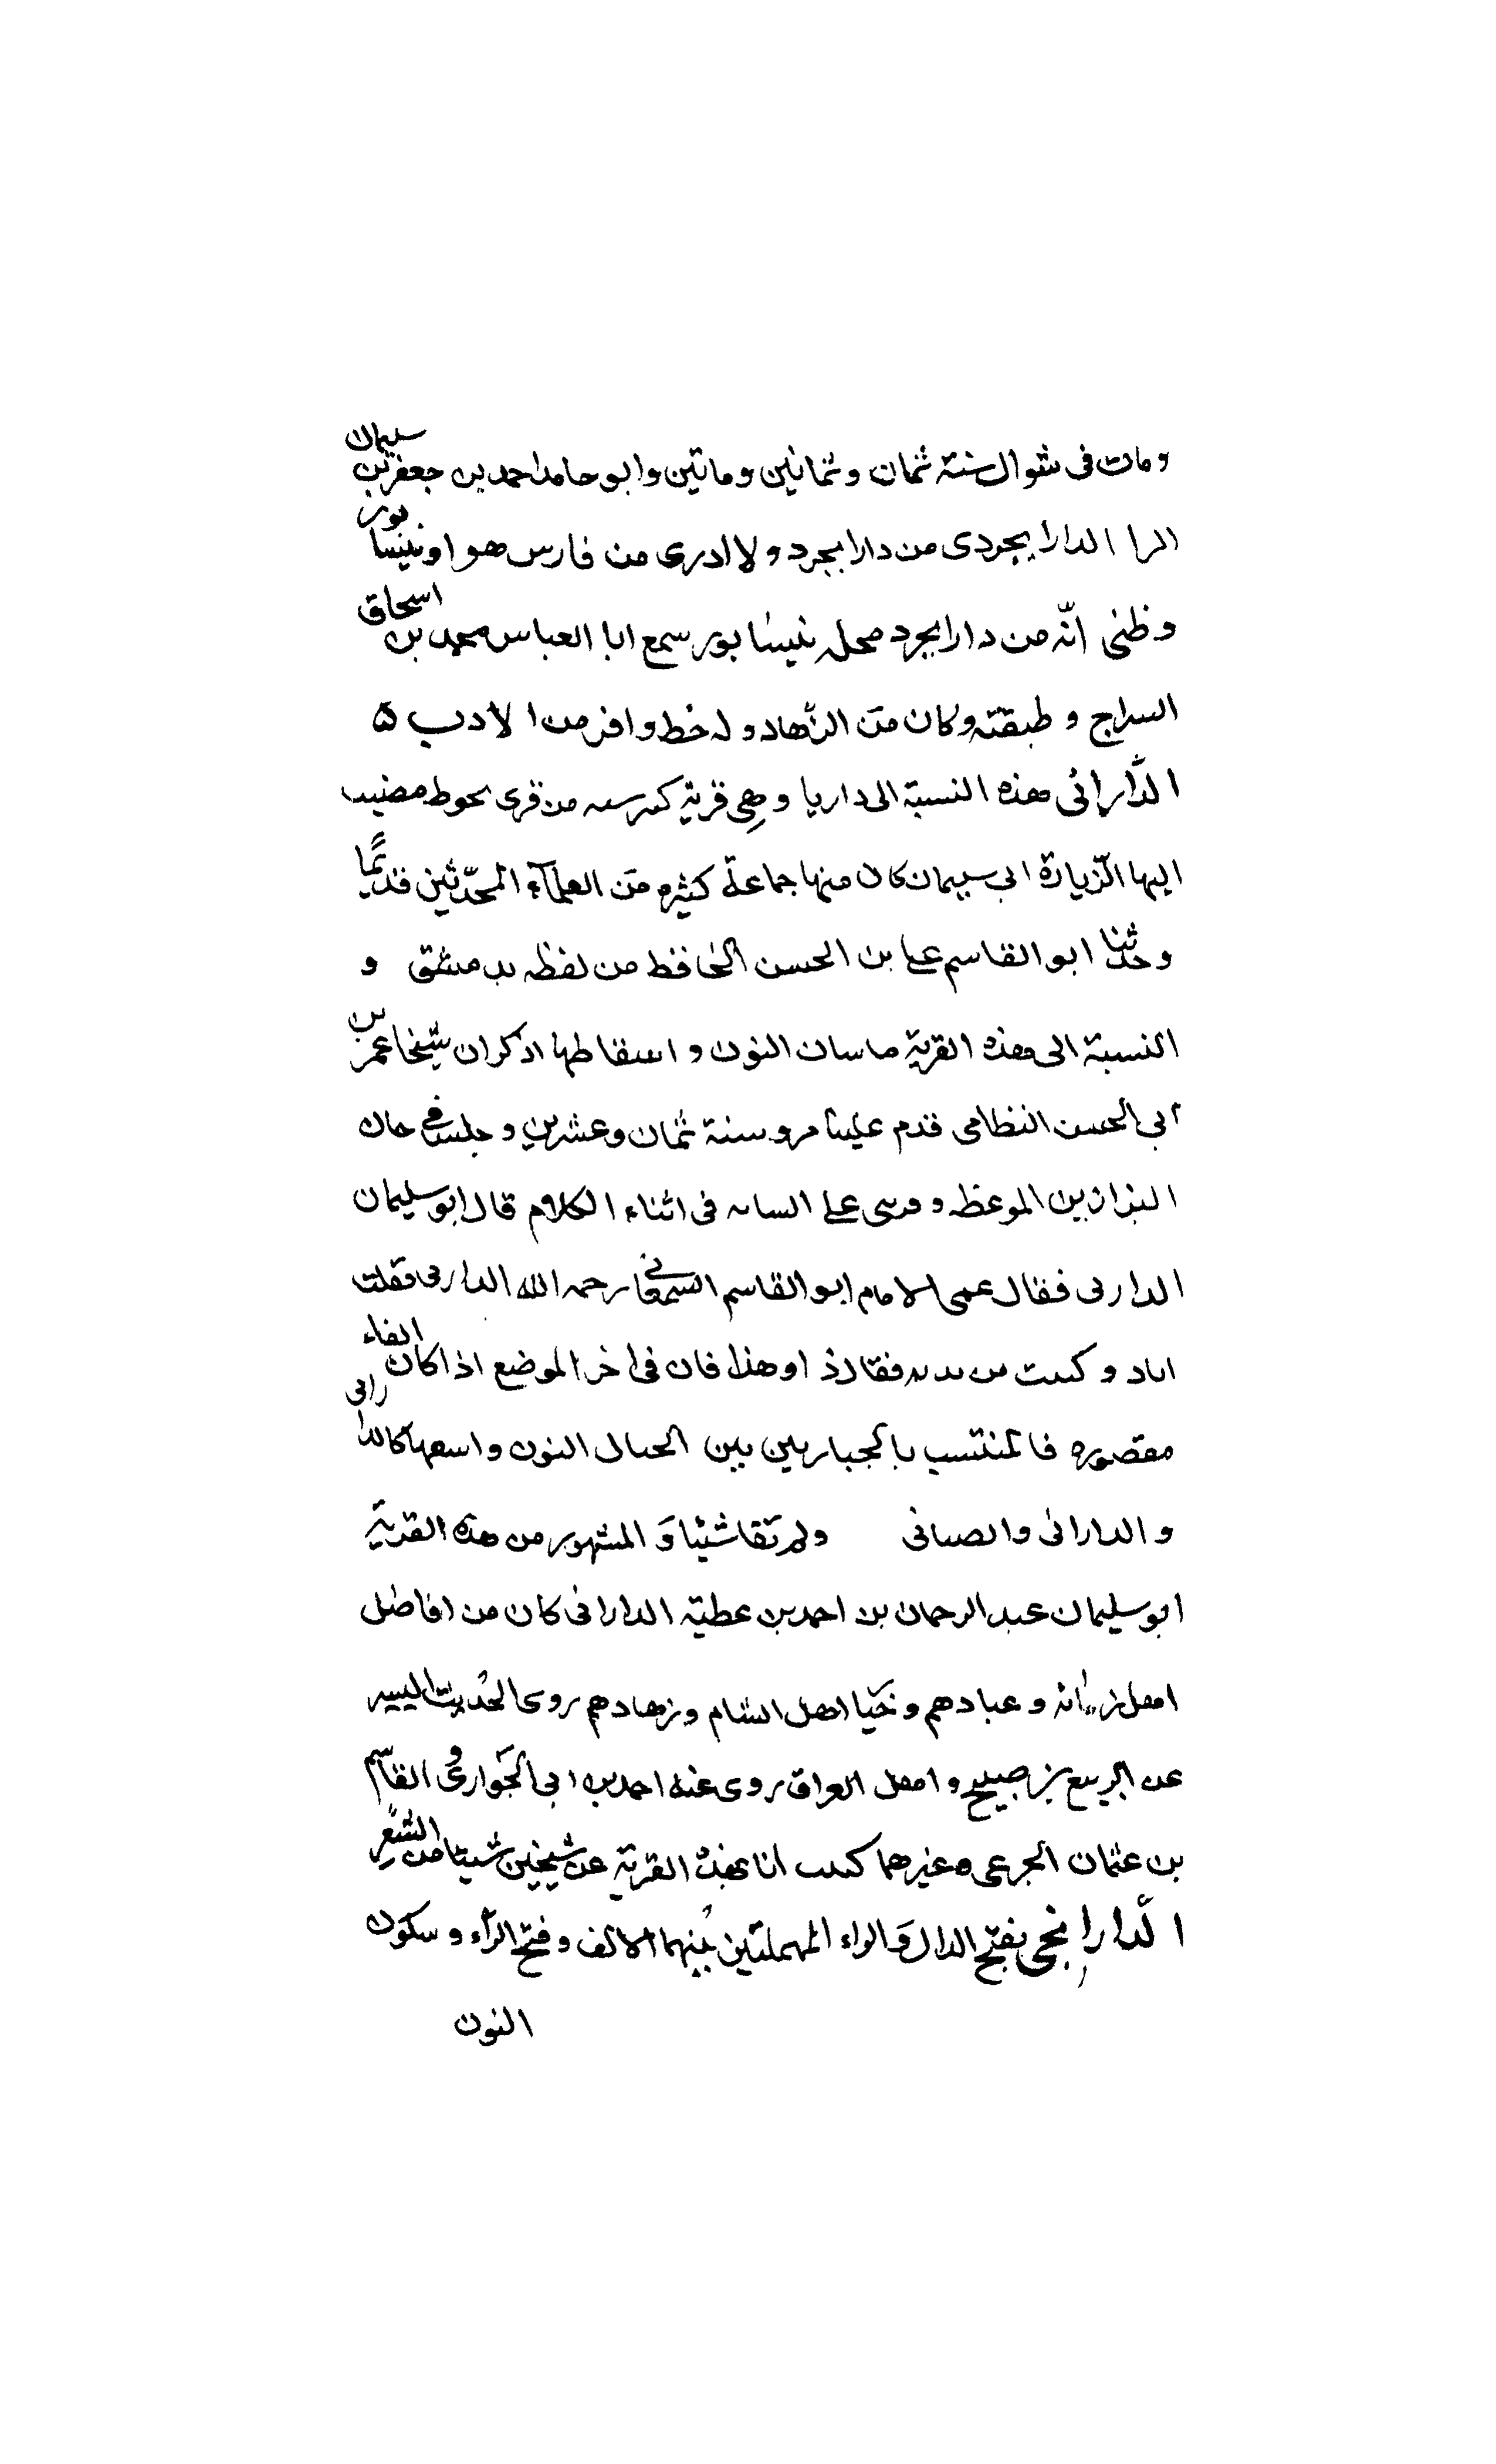 ومات فى شوال سنة ثمان وثمانين وماتين وابو حامد احمد بن جعفر بن سليمان
الدارابجردى من دارابجرد ولا ادرى من فارس هو او نيسابور
وظنى انّه من دارابجرد محله نيسابور سمع ابا العباس محمد بن اسحاق
السراج وطبقته وكان من الزّهاد وله خط وافر من الادب ۵
الدّارانى هذه النسبة الى داريا وهى قرية من قرى
اليها الزّيارة ابى سليمان كان منها جماعة كثيره من العلمآء المحدّثين قديمًا
وحدثنا ابو القاسم على بن الحسن الحافظ من لفظه بدمشق و
النسبة الى هذه القرية النون و اسقاطها اذكر ان شيخا عمر بن
ابى الحسن النظامى قدم علينا مرو سنة ثمان وعشرين و جلس فى خان
البزازين الموعظه و على لسانه فى اثناء الكلام قال ابو سليمان
الدارنى فقال عمى الامام ابو القاسم السمعانى رحمه الله فقلت
و كنت فقال او هذا فان فى اخر الموضع اذا كان الفاء
مقصوره فالمنتسب بالجبار بين النون و كالدارانى
و الدارانى و ولم شيئا وَ المشهور من هذه القرية
ابو سليمان عبد الرحمان بن احمد بن عطيه الدارانى كان من افاضل
اهل زمانه و عبادهم و اهل الشام و زهادهم روى الحديث
عن الربيع بن صبيح و اهل العراق روى عنه احمد بن ابى الحوارى و القاسم
بن عثمان الجرعى و غيرهما كتبت انا بهذه القرية عن شيخين شيئا من الشعر
الدّارانجى بفتح الدال وَالراء المهملتين بينهما الالف و فتح الرآء و سكون
النون